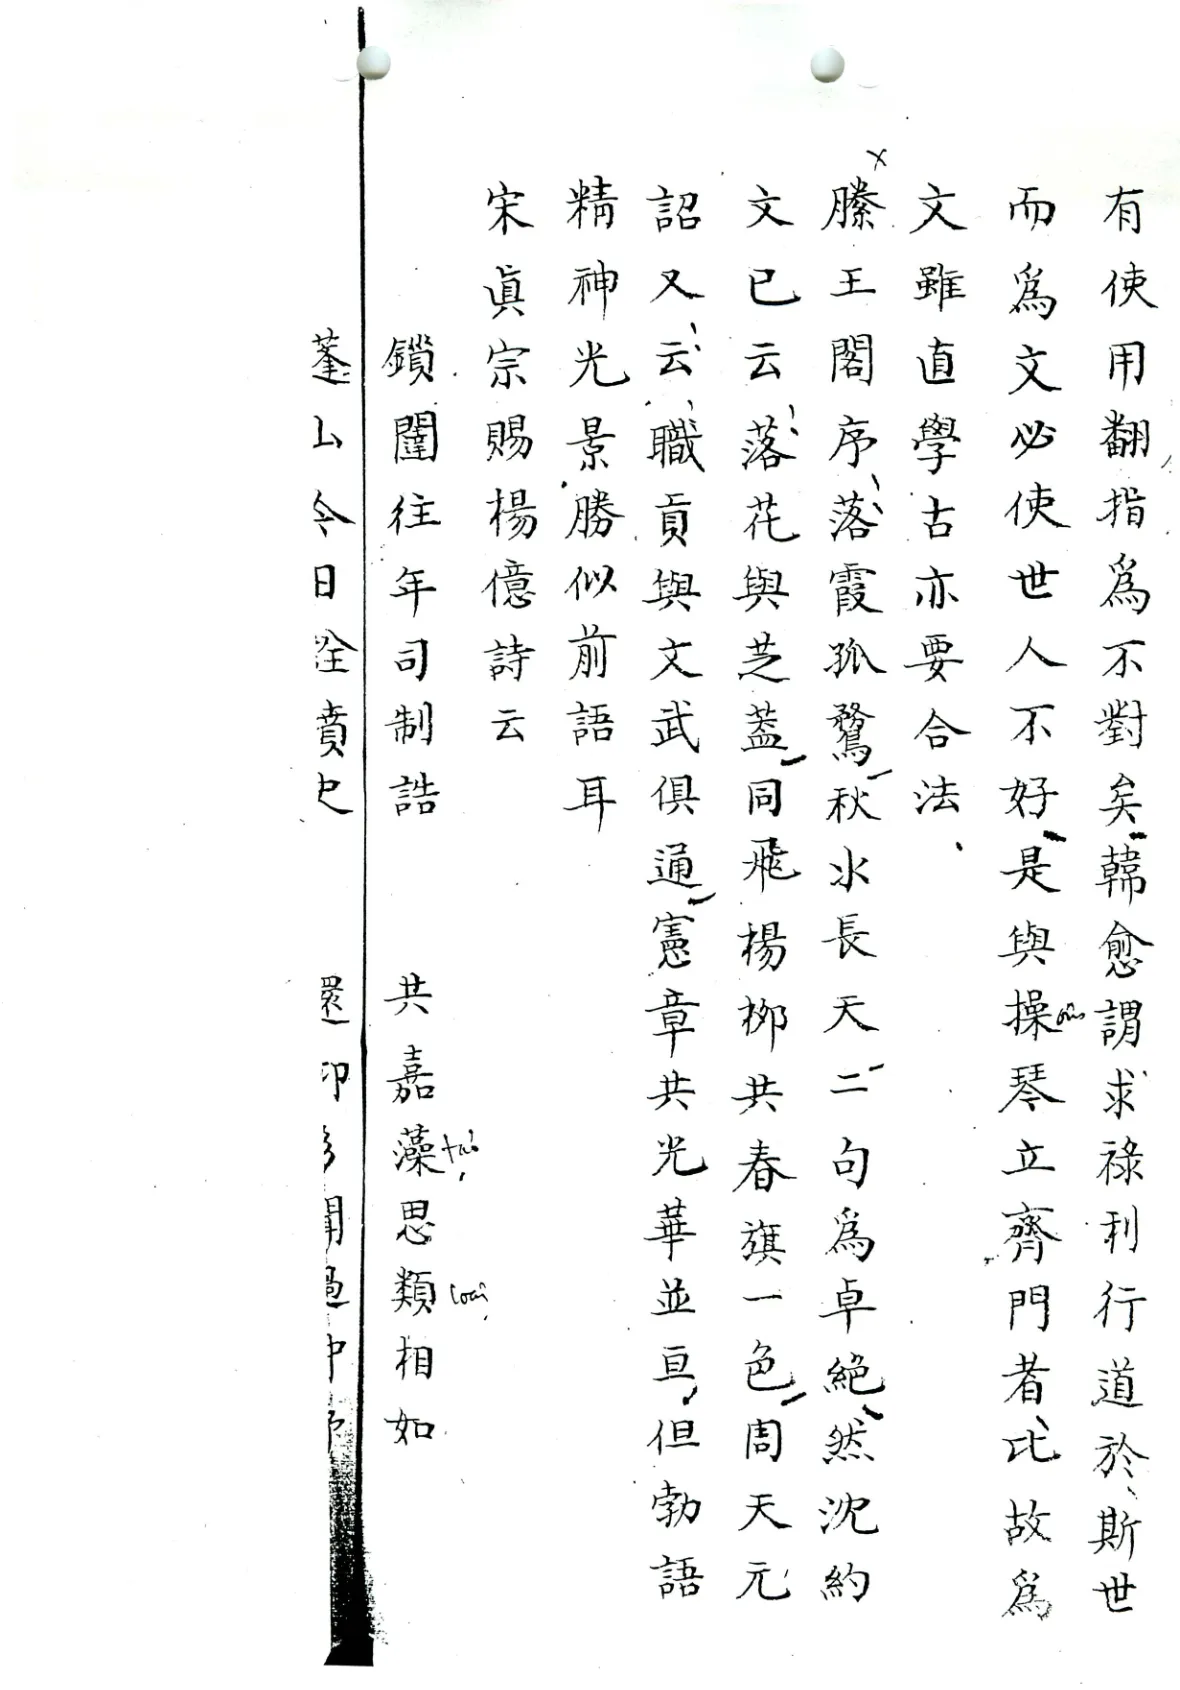 有使用翻指爲不對矣韓愈謂求祿利行道於斯世
而爲文必使世人不好是與操琴立齊門者比故爲
文雖直學古亦要合法
滕王閣序落霞孤鶩秋水長天二句爲卓絶然沈約
文已云落花與芝蓋同飛楊柳共春旗一色周天元
詔又云職貢與文武俱通憲章共光華並亘但勃語
精神光景勝似前語耳
宋眞宗賜楊億詩云
鎖闈往年司制誥 共嘉藻思類相如
蓬山今日詮賁史 還